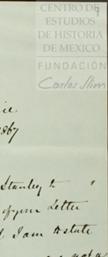 CENTRO DE
ESTUDIOS
DE HISTORIA
DE MEXICO
FUNDACIÓN
Carlos Slim
ice
1867
Stanley to "
of your Letter
I am to state